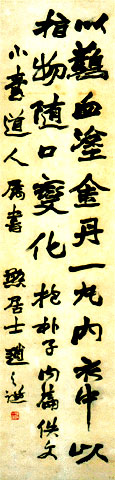 以血塗金丹一丸內衣中以
指物隨口變化 抱朴子內篇佚文
小道人屬書 居士趙之謙